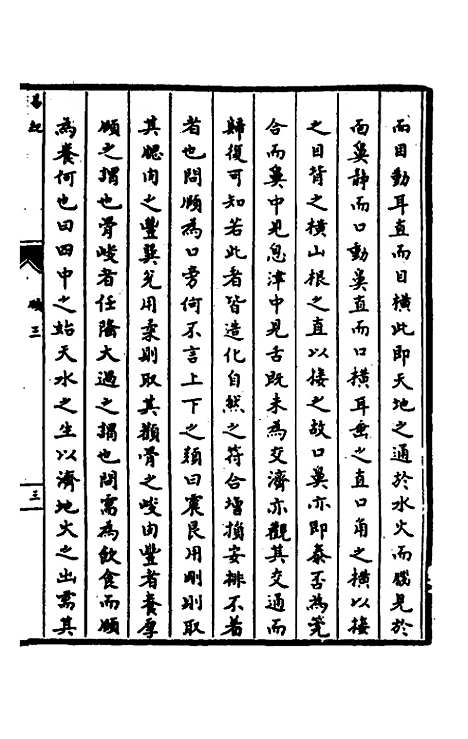 而目動耳直而目橫此即天地之通於水火而腦見於
面鼻靜而口動鼻直而口橫耳垂之直口角之橫以接
之目背之橫山根之直以接之故口鼻亦即泰否為竟
合而鼻中見息津中見舌既未為交濟亦觀其交通而
歸復可知若此者皆造化自然之符合增損安排不著
者也問頤為口旁何不言上下之頦曰震艮用剛則取
其腮肉之豐巽兌用柔則取其顴骨之峻肉豐者養厚
頤之謂也骨峻者任隆大過之謂也問需為飲食而頤
為養何也曰田中之蛄天水之生以濟地火之出需其
三
三